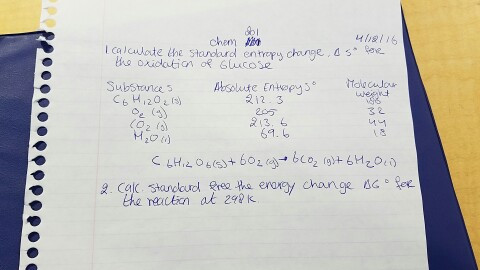 201
chem
4/18/16
1 calculate the standard entropy change, Δ S° for
the oxidation of Glucose
Substances Absolute Entropy S° Molecular weight
C6 H12O2 (s) 212.3
O2 (g) 205 32
CO2 (g) 213.6 44
H2O(l) 69.6 18
C6H12O6(s) + 6O2(g) → 6CO2(g) + 6H2O(l)
2. Calc. standard free the energy change ΔG° for
the reaction at 298K